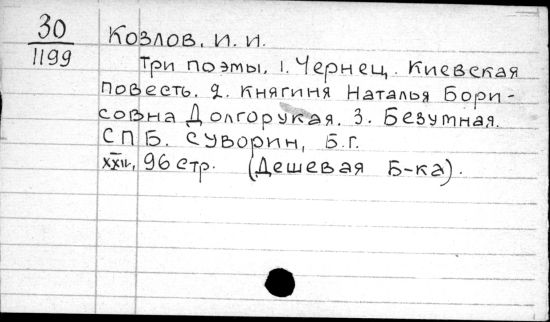 30
1199
Козлов, И. И.
Три поэмы. 1. Чернец. Киевская
повесть. 2. Княгиня Наталья Бори-
совна Долгорукая. 3. Безумная.
СПБ. Суворин, Б.г.
XXII, 96 стр. (Дешевая Б-ка).